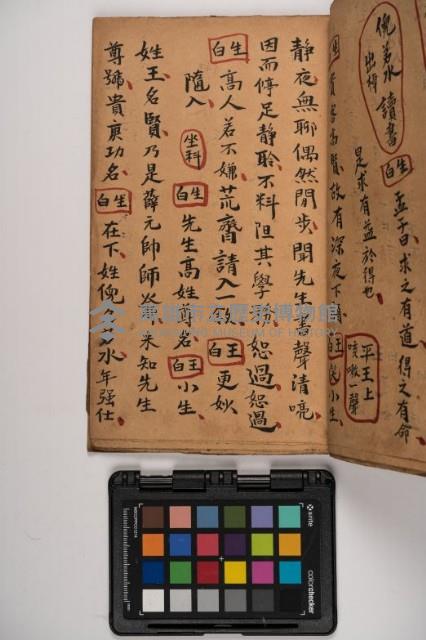 倪若水讀書
出場
生白 孟子曰求之有道得之有命
是求有益於得也
平王上
咳嗽一聲
生白
故有深夜下
王白
小生
靜夜無聊偶然閒步聞先生書聲清喨
因而停足靜聆不料阻其學功恕過恕過
生白 高人若不嫌荒齋請入一
王白 更妙
隨入 坐科 生白 先生高姓尊名 王白 小生
姓王名賢乃是薛元帥師
未知先生
尊號貴庚功名 生白 在下姓倪
水年強仕
高雄市立歷史博物館
KAOHSIUNG MUSEUM OF HISTORY
x-rite
colorchecker